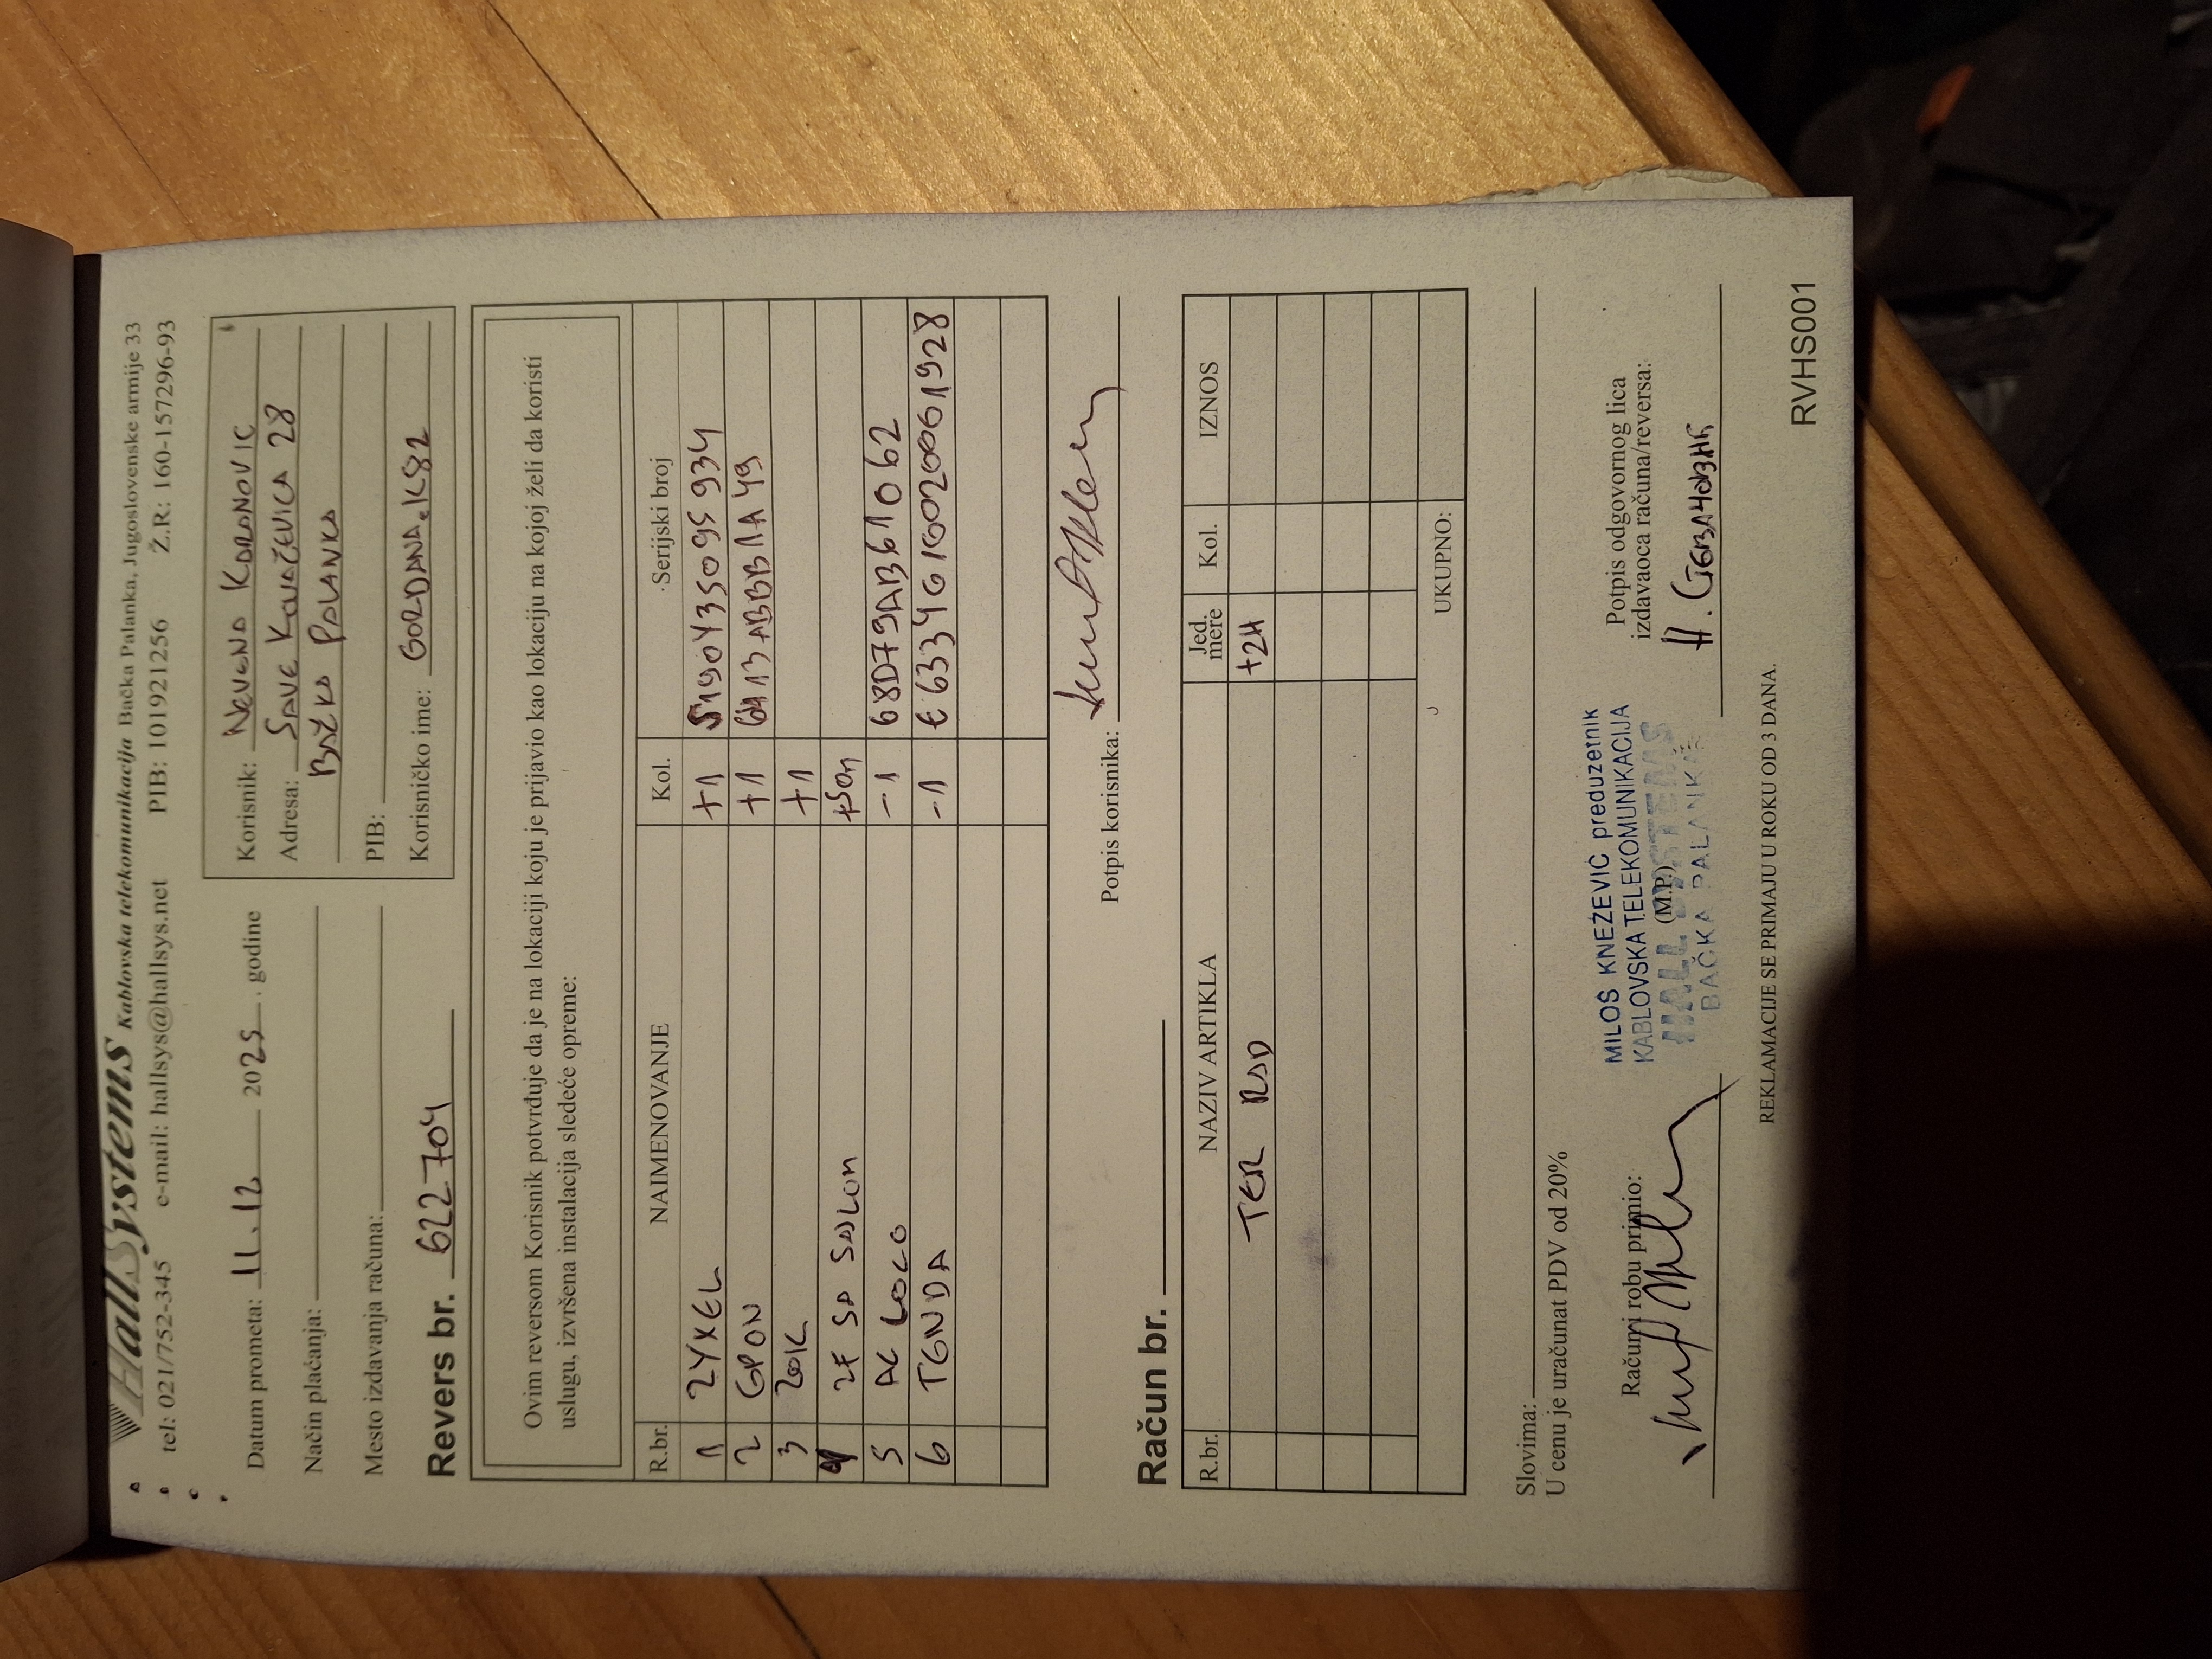 HallSystems Kablovska telekomunikacija Bačka Palanka, Jugoslovenske armije 33
tel: 021/752-345 e-mail: hallsys@hallsys.net PIB: 101921256 Ž.R: 160-157296-93
Datum prometa: 11.12 2025. godine
Način plaćanja:
Mesto izdavanja računa:
Revers br. 622704
Korisnik: NEVENA KARANOVIC
Adresa: SAVE KOVAČEVICA 28
BAČKA PALANKA
PIB:
Korisničko ime: GORDANA.K82
Ovim reversom Korisnik potvrđuje da je na lokaciji koju je prijavio kao lokaciju na kojoj želi da koristi
uslugu, izvršena instalacija sledeće opreme:
R.br. NAIMENOVANJE Kol. Serijski broj
1 ZYXEL +1 S190Y35095934
2 GPON +1 6413ABBB1A49
3 ZOIK +1
4 2F SA SAJLOM +50m
5 AC LOCO -1 68D79AB61062
6 TENDA -1 E6334G160020061928
Potpis korisnika:
Račun br.
R.br. NAZIV ARTIKLA Jed. mere Kol. IZNOS
TER RAD +2H
UKUPNO:
Slovima:
U cenu je uračunat PDV od 20%
Račun i robu primio:
MILOŠ KNEŽEVIĆ preduzetnik
KABLOVSKA TELEKOMUNIKACIJA
(M.P.)
HALL SYSTEMS
BAČKA PALANKA
Potpis odgovornog lica
izdavaoca računa/reversa:
REKLAMACIJE SE PRIMAJU U ROKU OD 3 DANA.
RVHS001